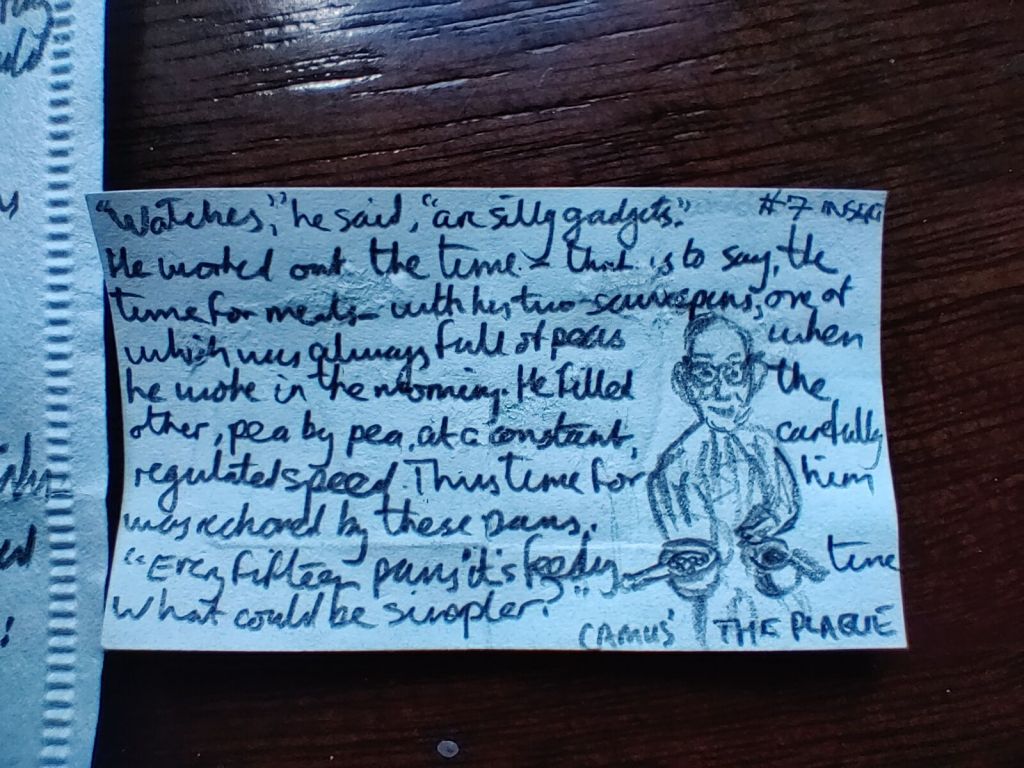 "Watches," he said, "are silly gadgets." #7 INSERT
He worked out the time – that is to say, the
time for meals – with his two saucepans, one of
which was always full of peas when
he woke in the morning. He filled the
other, pea by pea, at a constant, carefully
regulated speed. Thus time for him
was reckoned by these pans.
"Every fifteen pans it's feeding time
What could be simpler?"
CAMUS' THE PLAGUE